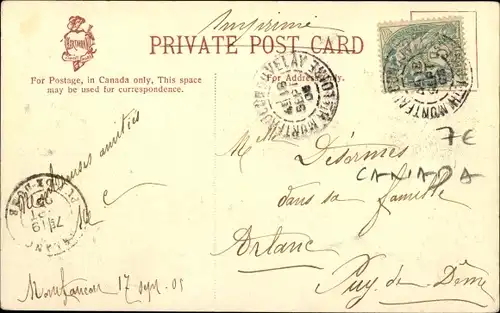 Imprimé
PRIVATE POST CARD
For Postage, in Canada only, This space
may be used for correspondence.
For Address only.
7€
CANADA
amitiés
Mlle Désormes
dans sa famille
Arlanc
Puy-de-Dôme
Montfaucon 17 sept. 05